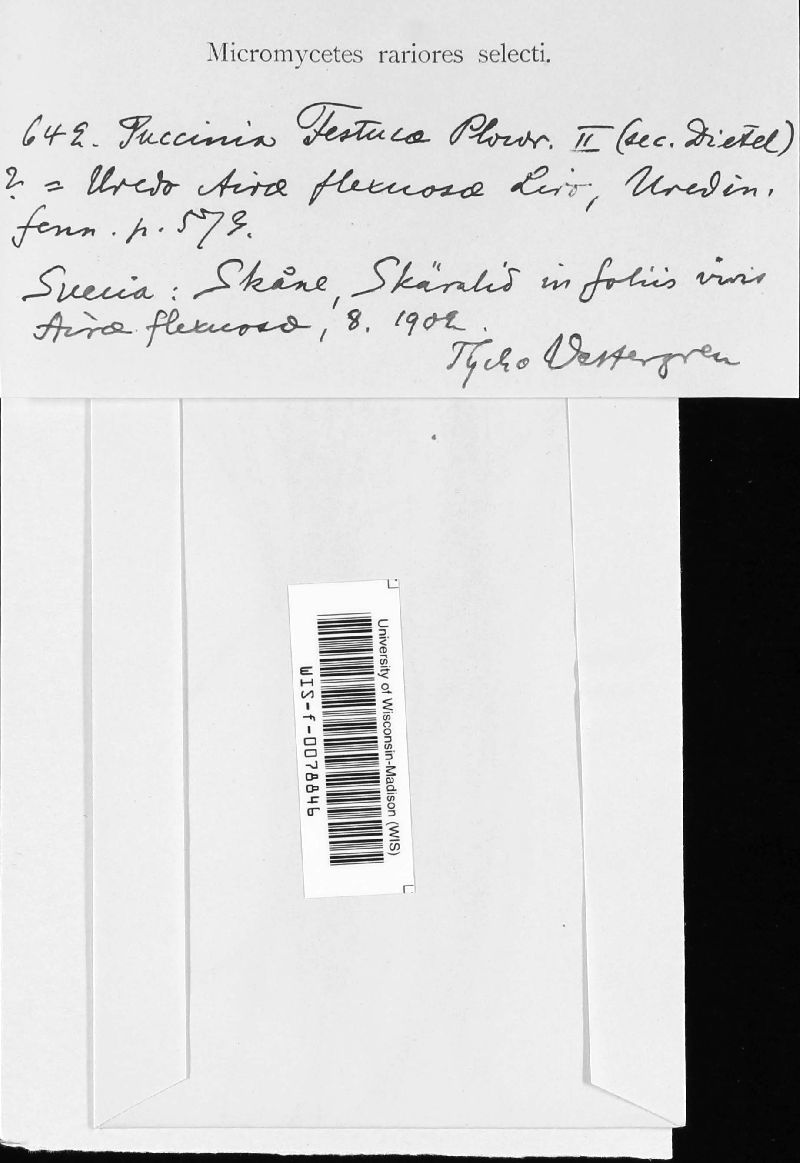 Micromycetes rariores selecti.
642. Puccinia Festucæ Plowr. II (sec. Dietel)
? = Uredo Airæ flexuosæ Liro, Uredin.
fenn. p. 572.
Suecia: Skåne, Skäralid in foliis vivis
Airæ flexuosæ, 8. 1902.
Tycho Vestergren
University of Wisconsin-Madison (WIS)
WIS-f-0078846